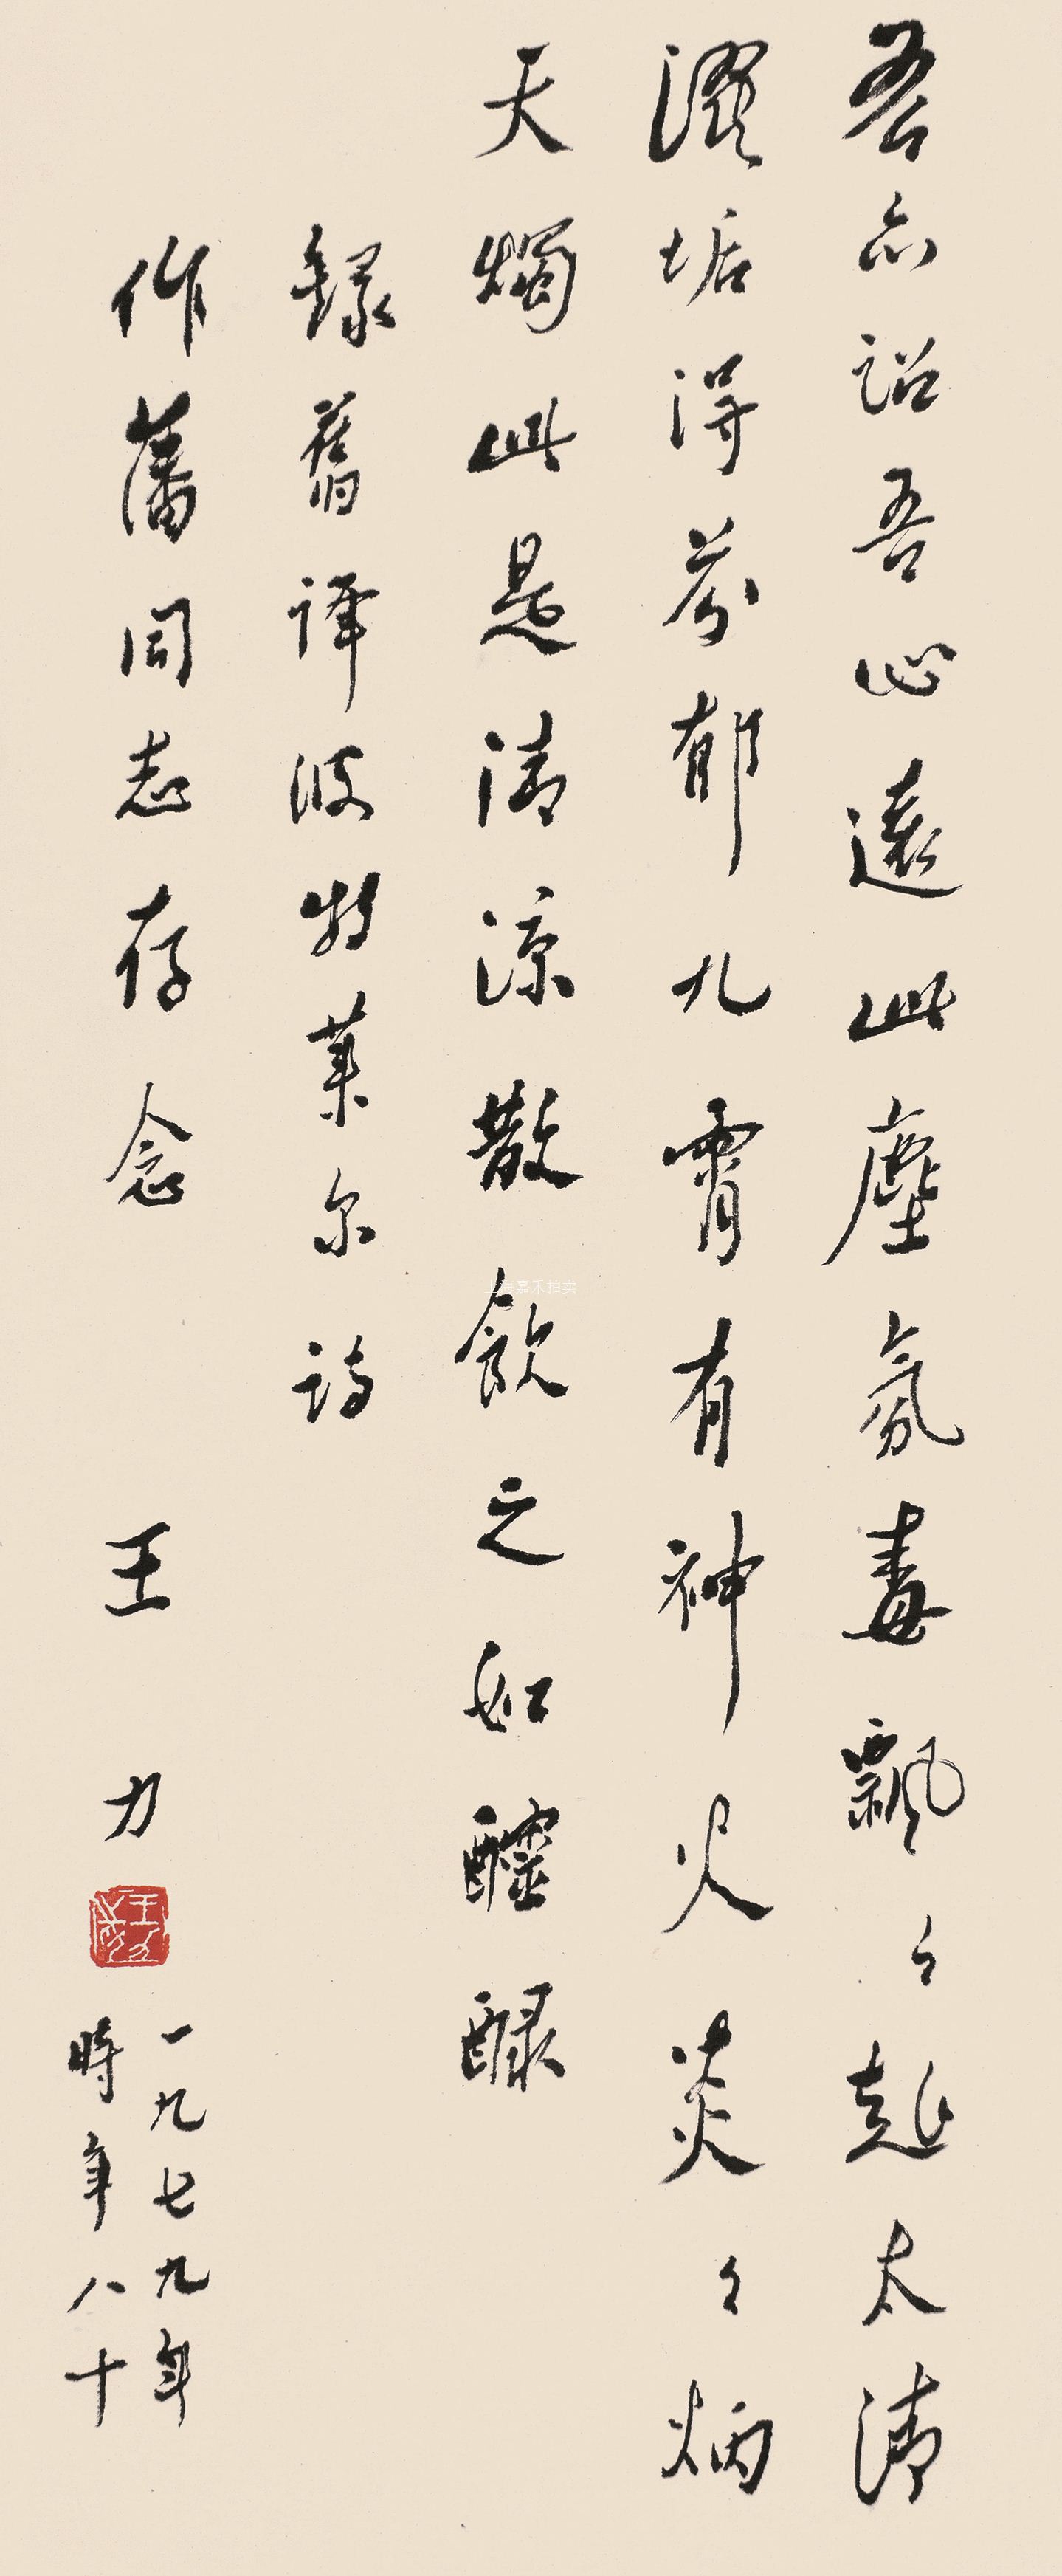 吾亦詔吾心遠此塵氛毒飄々起太清
濯垢得芬郁九霄有神火炎々炳
天燭此是清涼散飲之如醽醁
錄舊譯波特萊尔詩
作藩同志存念
王力
王力
一九七九年
時年八十
上海嘉禾拍卖